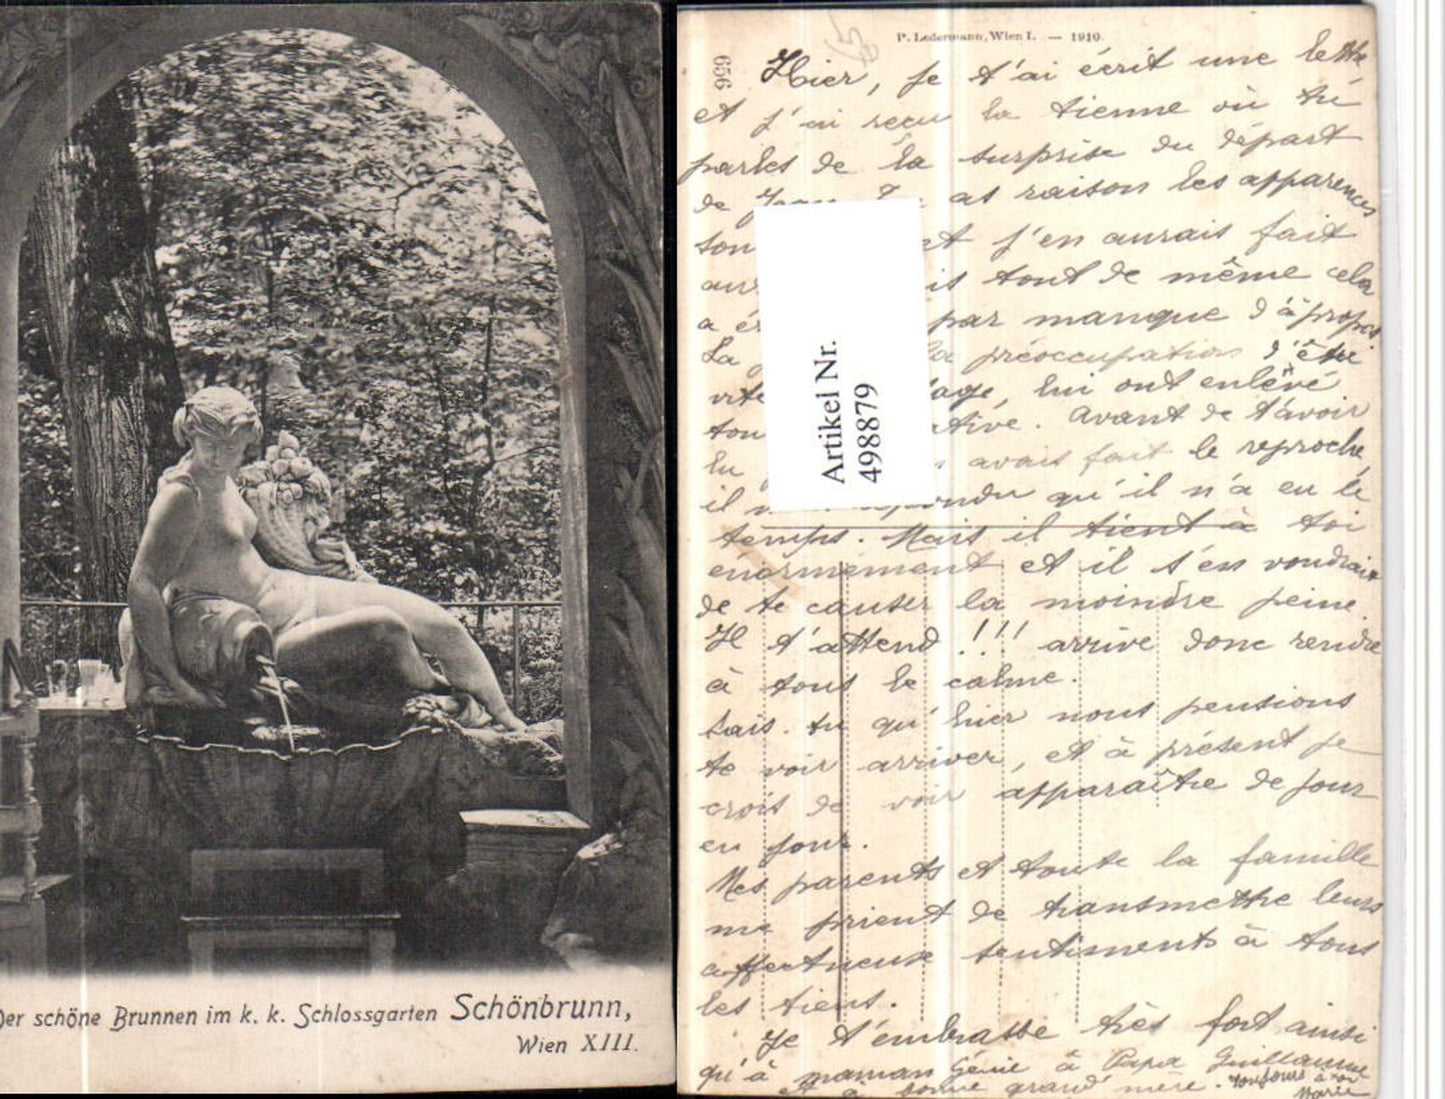 Der schöne Brunnen im k. k. Schlossgarten Schönbrunn,
Wien XIII.
P. Ledermann, Wien I. — 1910.
656
Hier, je t'ai écrit une lettre
et j'ai reçu la tienne où tu
parles de la surprise du départ
de Jean Tu as raison les apparences
son t j'en aurais fait
is tout de même cela
a par manque d'àpropos
La la préoccupation d'être
lui ont enlevé
tou ative. Avant de t'avoir
lu avais fait le reproche,
il ondu qu'il n'a eu le
temps. Mais il tient à toi
enormement et il s'en voudrait
de te causer la moindre peine
Il t'attend !!! arrive donc rendre
à tous le calme.
Sais-tu qu'hier nous pensions
te voir arriver, et à présent je
crois de voir apparaître de jour
en jour.
Mes parents et toute la famille
me prient de transmettre leurs
affectueux sentiments à tous
les tiens.
Je t'embrasse très fort ainsi
qu'à maman Génie à Papa Guillaume
et à bonne grand'mère. Toujours à toi
Marie
Artikel Nr.
498879